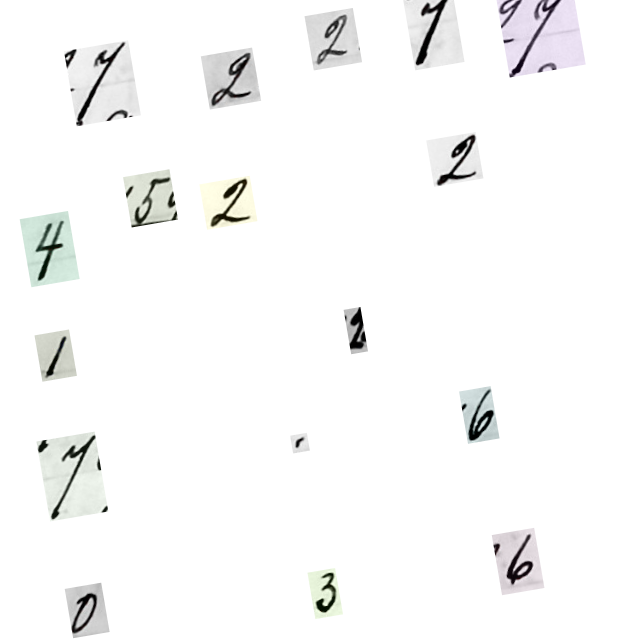 7 2 2 7 7
5 2 2
4
1 2
7 6
0 3 6